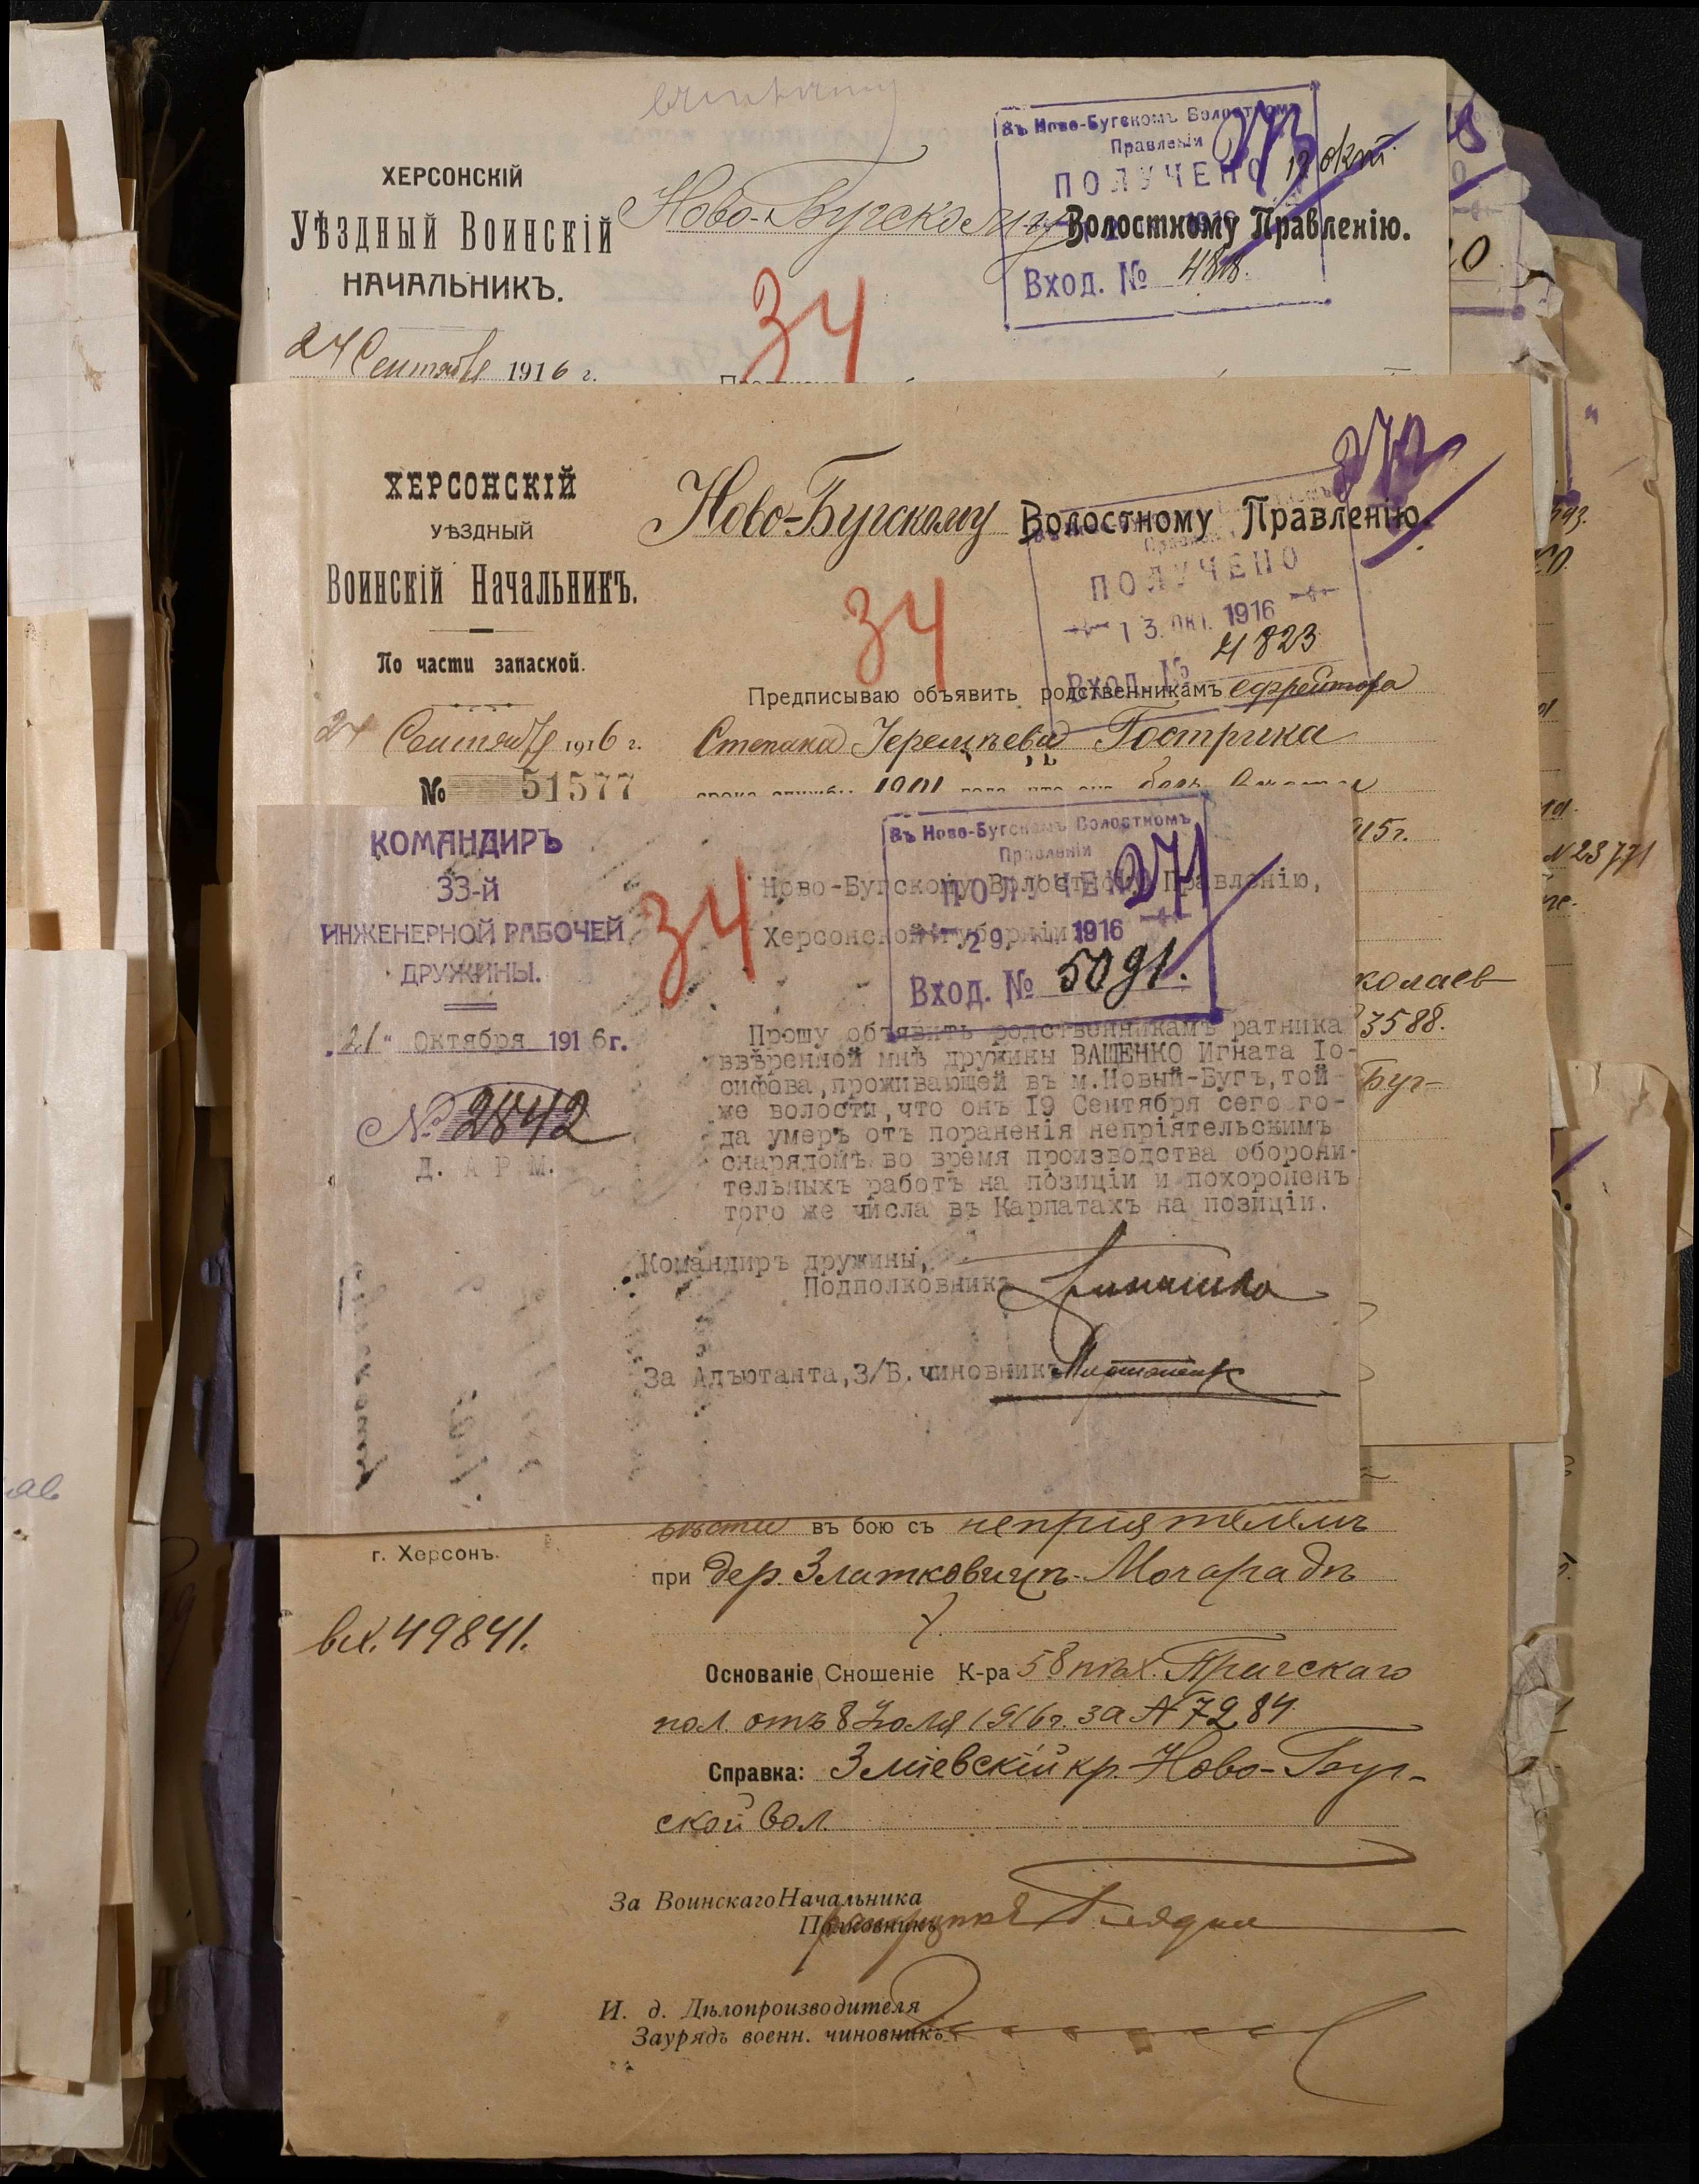 ХЕРСОНСКІЙ
УѢЗДНЫЙ ВОИНСКІЙ
НАЧАЛЬНИКЪ.
24 Сентября 1916 г.
Ново-Бугскому Волостному Правленію.
Въ Ново-Бугскомъ Волостномъ
Правленіи
273
ПОЛУЧЕНО
12 окт.
Вход. №
34
ХЕРСОНСКІЙ
УѢЗДНЫЙ
ВОИНСКІЙ НАЧАЛЬНИКЪ.
По части запасной.
24 Сентября 1916 г.
№ 51577
Ново-Бугскому Волостному Правленію.
272
ПОЛУЧЕНО
13. ОКТ. 1916
Вход. № 4823
34
Предписываю объявить родственникамъ ефрейтора
Степана
срока службы 1901 года, что онъ безъ
15г.
N 23771
колаев
3588.
Буг-
КОМАНДИРЪ
33-й
ИНЖЕНЕРНОЙ РАБОЧЕЙ
ДРУЖИНЫ.
„21" Октября 1916г.
№ 2842
Д. А Р М.
34
Въ Ново-Бугскомъ Волостномъ
Правленіи
271
ПОЛУЧЕНО
29 1916
Вход. № 5091.
Ново-Бугскому Волостному Правленію,
Херсонской губерніи
Прошу объявить родственникамъ ратника
ввѣренной мнѣ дружины ВАЩЕНКО Игната Іо-
сифова, проживающей въ м.Новый-Бугъ, той-
же волости, что онъ 19 Сентября сего го-
да умеръ отъ пораненія непріятельскимъ
снарядомъ во время производства оборони-
тельныхъ работъ на позиціи и похороненъ
того же числа въ Карпатахъ на позиціи.
Командиръ дружины,
Подполковникъ
За Адъютанта, З/В. чиновникъ
вѣсти въ бою съ непріятелемъ
г. Херсонъ.
при дер. Златковицъ-
вх. 49841.
Основаніе Сношеніе К-ра 58 пѣх. Прагскаго
пол отъ 8 Іюля 1916 г. за № 7284
Справка: Зміевскій кр. Ново-Буг-
ской вол.
За Воинскаго Начальника
Полковникъ
И. д. Дѣлопроизводителя
Заурядъ военн. чиновникъ